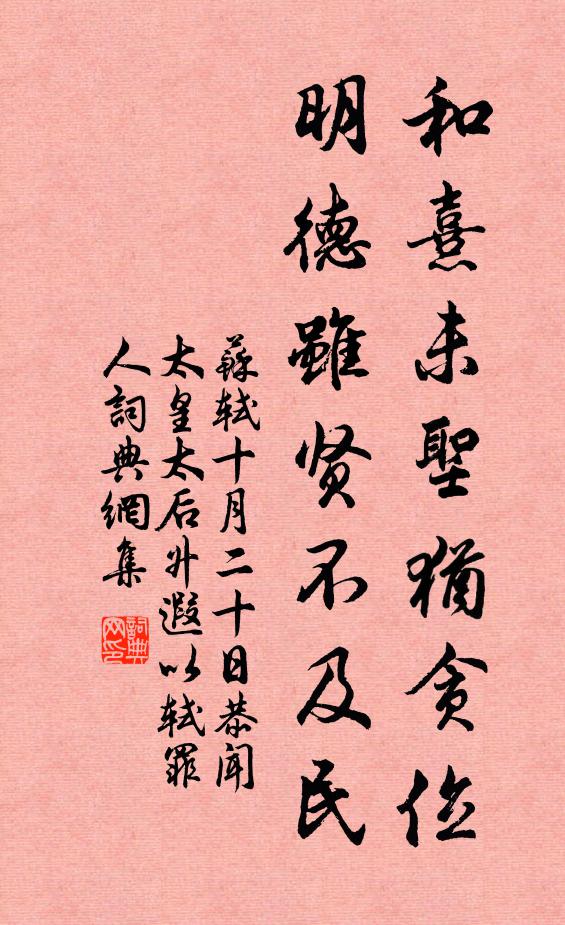 和熹未聖猶貪位
明德雖贤不及民
蘇軾十月二十日恭聞
太皇太后升遐以軾罪
人詞典網集
詞典
网印